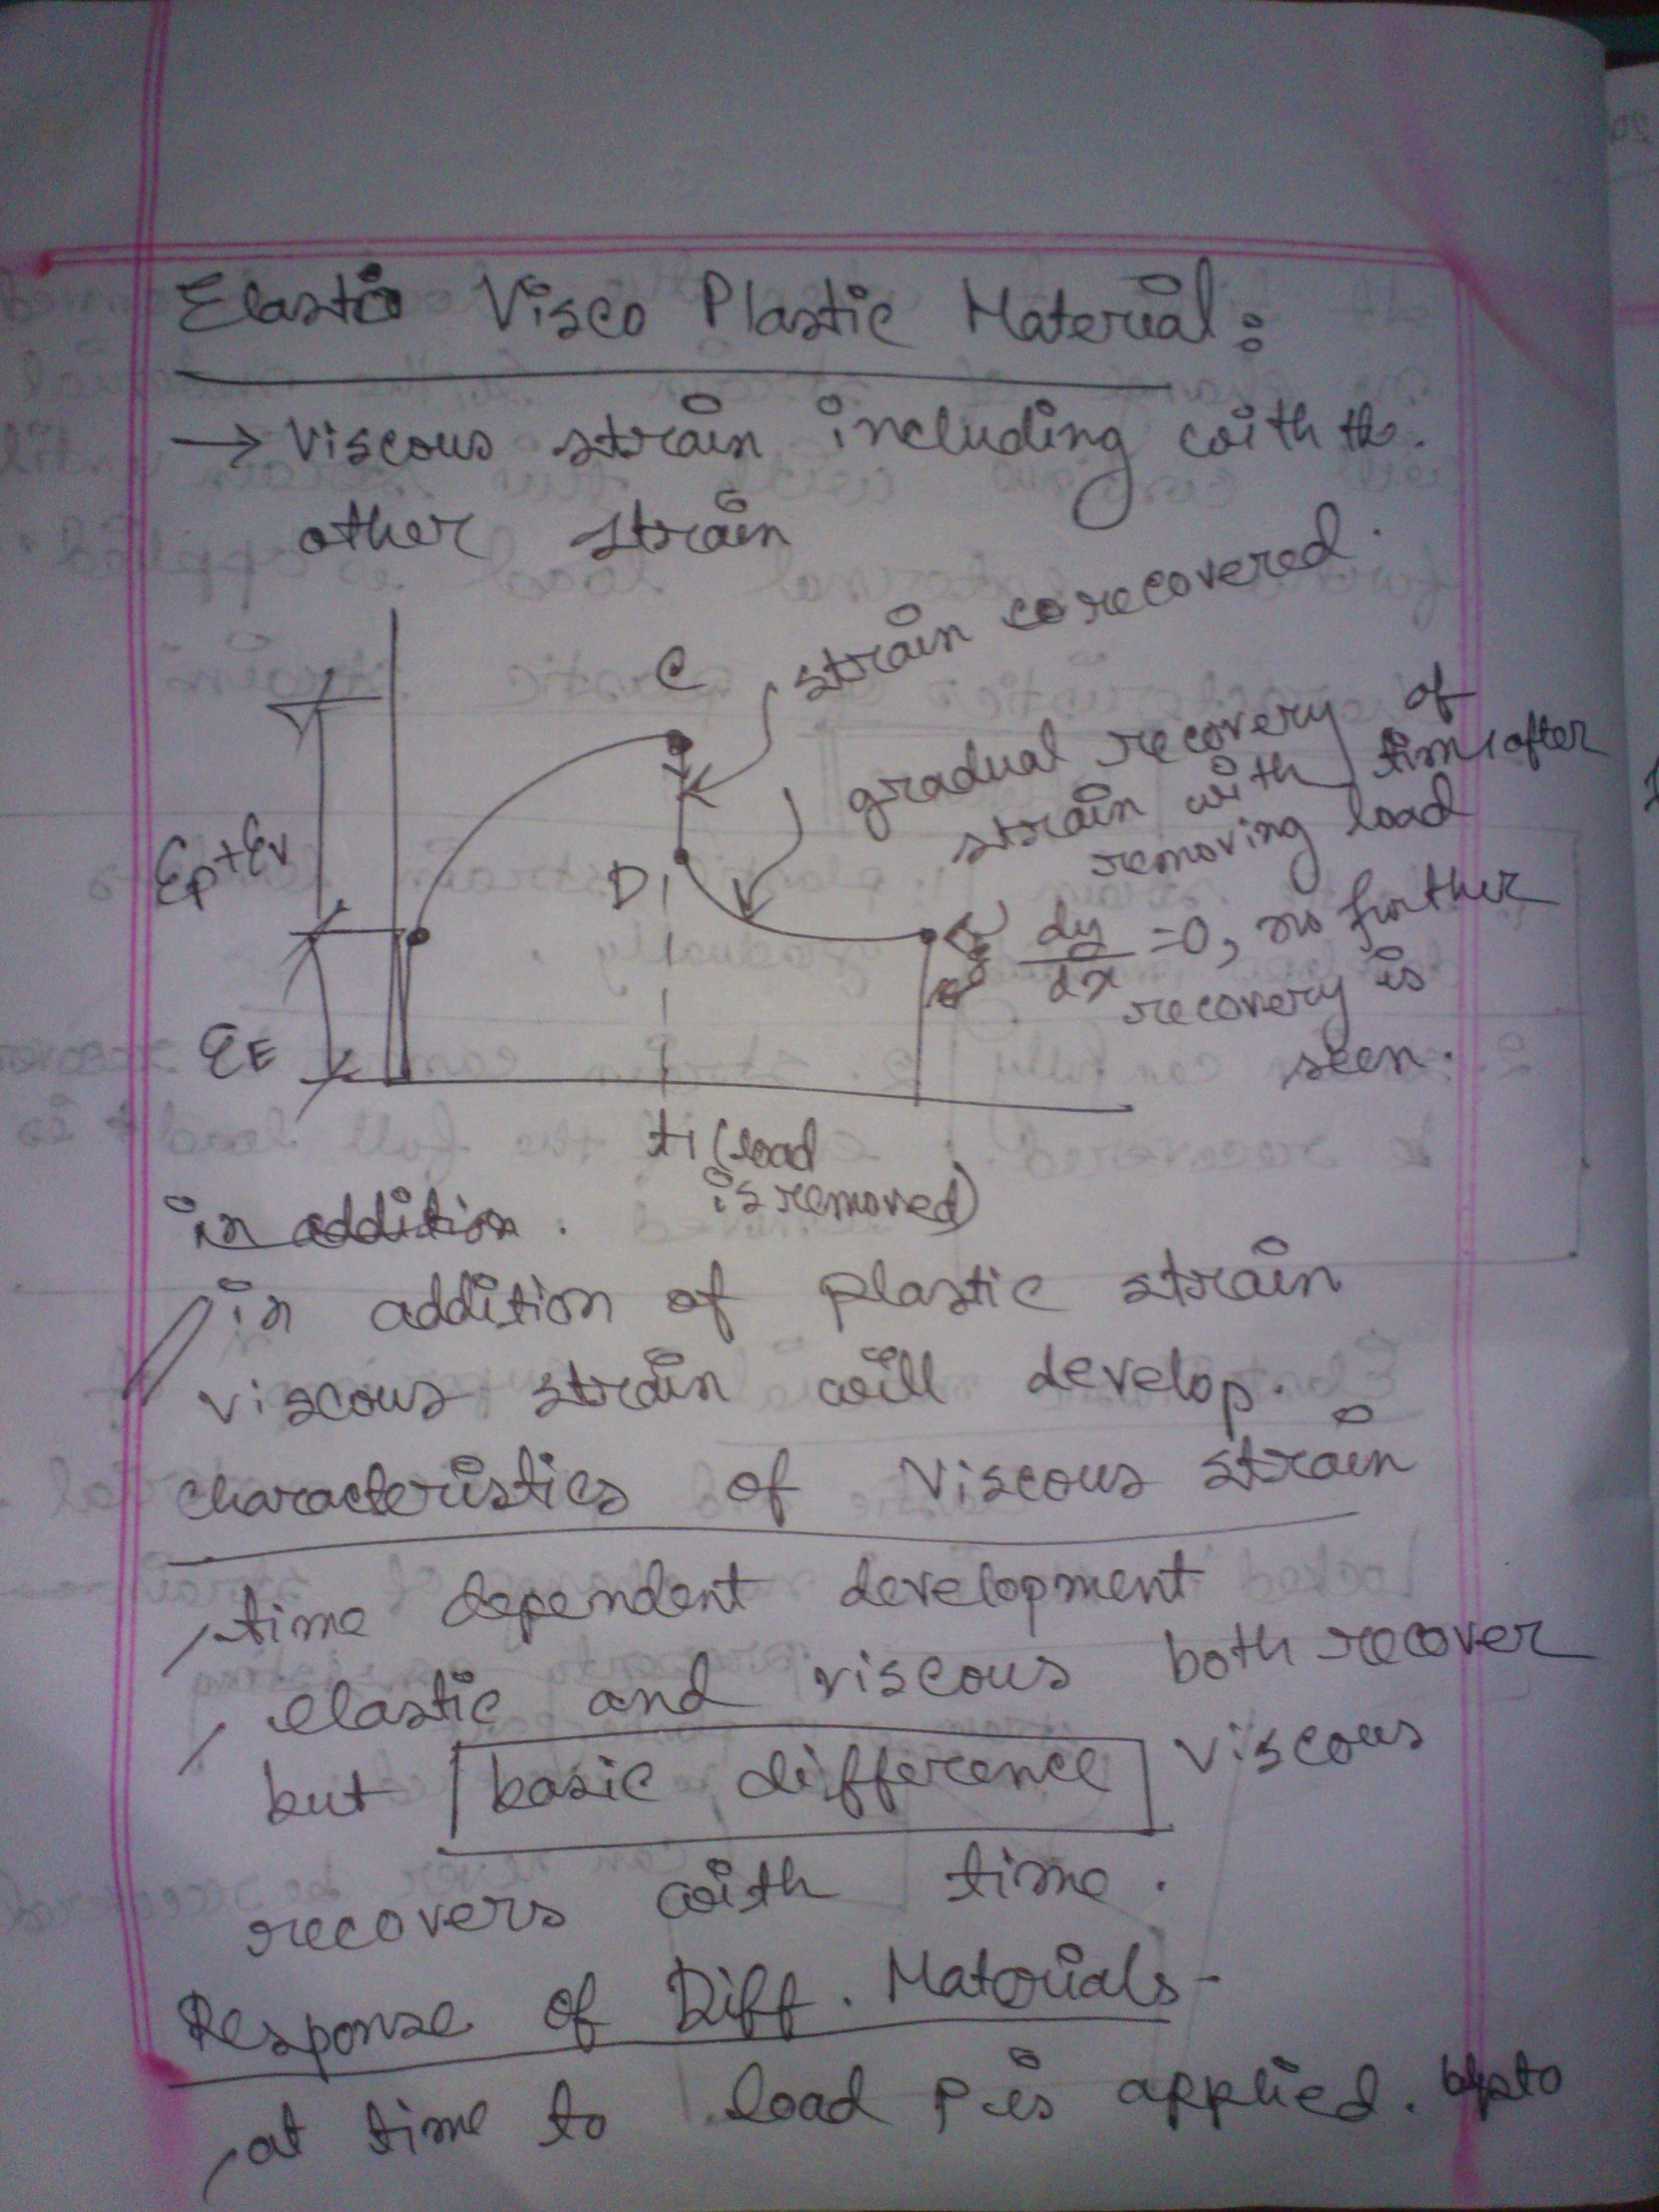 Elastic Visco Plastic Material:
→ Viscous strain including with the.
other strain
strain co recovered.
C
gradual recovery of
strain with time after
removing load
Ep+Ev
D
dy/dx =0, no further
recovery is
seen.
EE
t1 (load
is removed)
in addition.
in addition of plastic strain
viscous strain will develop.
characteristics of Viscous strain
time dependent development
elastic and viscous both recover
but basic difference viscous
recovers with time.
Response of Diff. Materials-
at time to load P is applied. upto